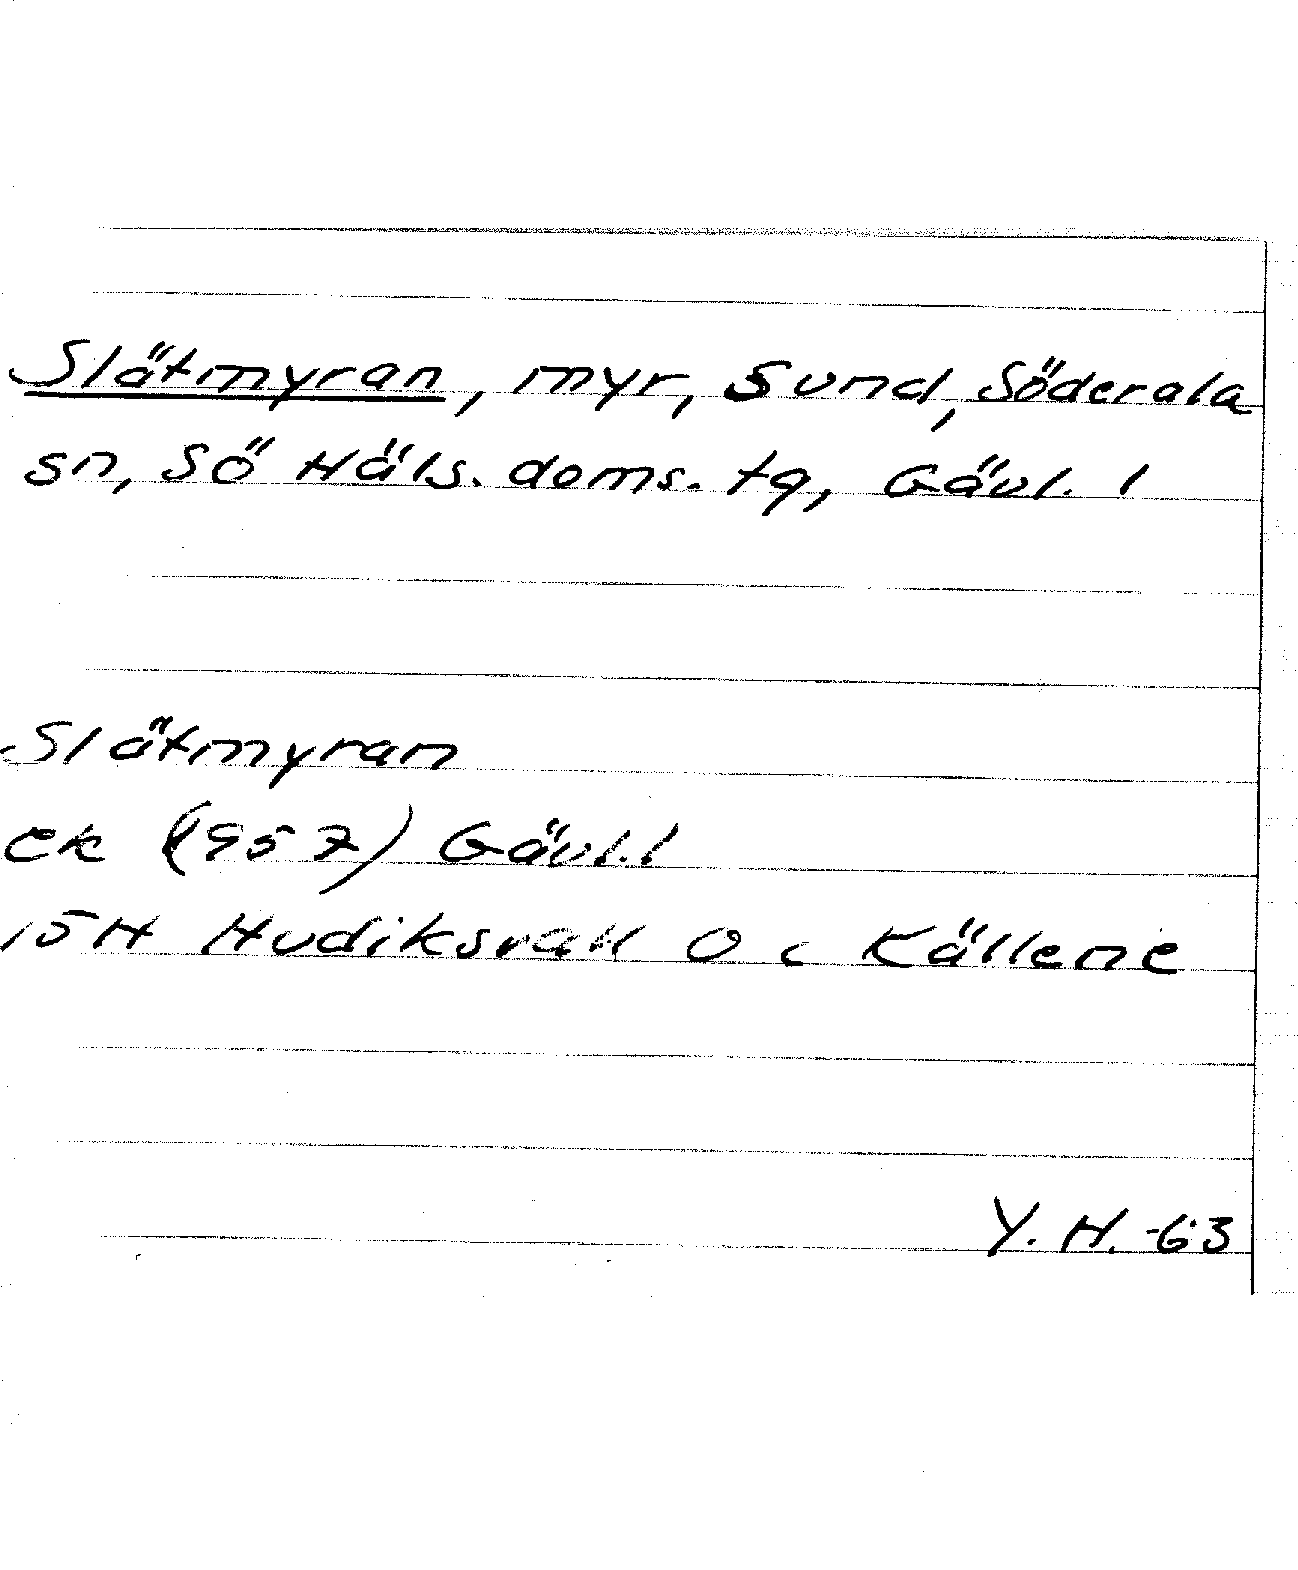 Slätmyran, myr, Sund, Söderala
sn, Sö Häls. doms. tg, Gävl. l
Slätmyran
ek (1957) Gävl. l
15H Hudiksvall 0 c Källene
Y. H. -63